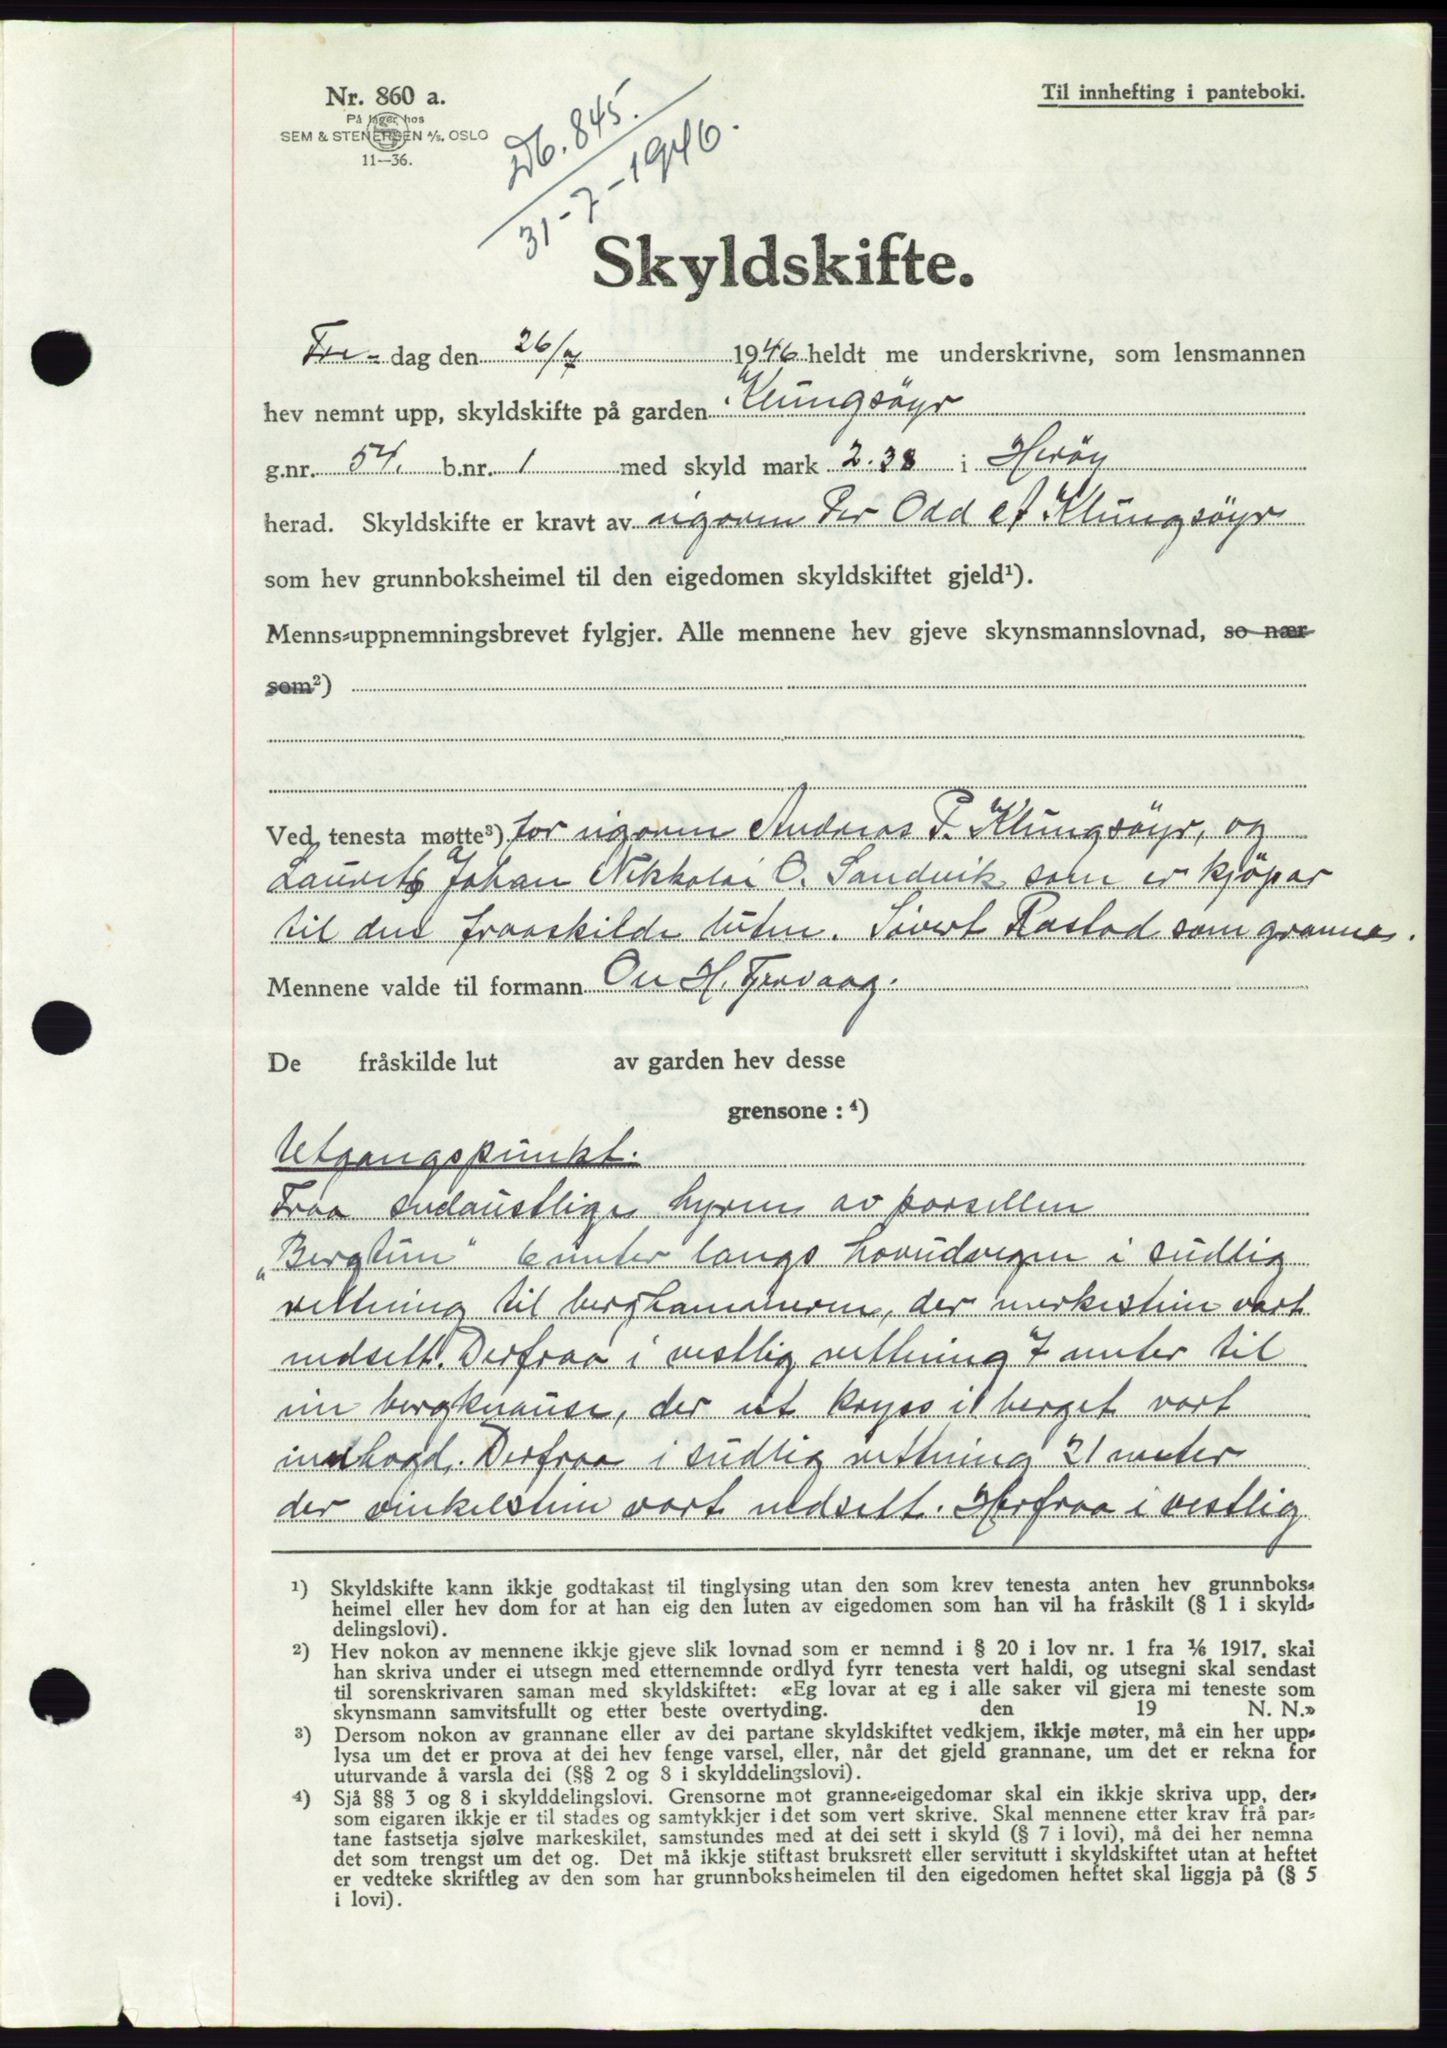 Nr. 860 a.
På lager hos
SEM & STENERSEN A/S, OSLO
11—36.
Db. 845.
31-7-1946.
Til innhefting i panteboki.
Skyldskifte.
Fre- dag den 26/7 1946 heldt me underskrivne, som lensmannen
hev nemnt upp, skyldskifte på garden Klungsöyr
g.nr. 54. b.nr. 1 med skyld mark 2.38 i Heröy
herad. Skyldskifte er kravt av eigaren Per Odd A Klungsöyr
som hev grunnboksheimel til den eigedomen skyldskiftet gjeld¹).
Menns-uppnemningsbrevet fylgjer. Alle mennene hev gjeve skynsmannslovnad, so nær
som²)
Ved tenesta møtte³) for eigaren Andreas P. Klungsöyr, og
Laurits Johan Nikkolai O. Sandvik som er kjöpar
til den fraaskilde luten. Sivert Rastad som granne.
Mennene valde til formann Ou H. Tjervaag.
De fråskilde lut av garden hev desse
grensone : ⁴)
Utgangspunkt.
Fraa sudaustlige hyrne av parsellen
„Bergtun" 6 meter langs hovudvegen i sudlig
rettning til berghammeren, der merkestein vart
nedsett. Derfraa i vestlig rettning 7 meter til
ein bergknause, der eit kryss i berget vart
innhogd. Derfraa i sudlig rettning 21 meter
der vinkelstein vart nedsett. Herfraa i vestlig
¹) Skyldskifte kann ikkje godtakast til tinglysing utan den som krev tenesta anten hev grunnboks-
heimel eller hev dom for at han eig den luten av eigedomen som han vil ha fråskilt (§ 1 i skyld-
delingslovi).
²) Hev nokon av mennene ikkje gjeve slik lovnad som er nemnd i § 20 i lov nr. 1 fra ⅙ 1917, skal
han skriva under ei utsegn med etternemnde ordlyd fyrr tenesta vert haldi, og utsegni skal sendast
til sorenskrivaren saman med skyldskiftet: «Eg lovar at eg i alle saker vil gjera mi teneste som
skynsmann samvitsfullt og etter beste overtyding. den 19 N. N.»
³) Dersom nokon av grannane eller av dei partane skyldskiftet vedkjem, ikkje møter, må ein her upp-
lysa um det er prova at dei hev fenge varsel, eller, når det gjeld grannane, um det er rekna for
uturvande å varsla dei (§§ 2 og 8 i skylddelingslovi).
⁴) Sjå §§ 3 og 8 i skylddelingslovi. Grensorne mot granne-eigedomar skal ein ikkje skriva upp, der-
som eigaren ikkje er til stades og samtykkjer i det som vert skrive. Skal mennene etter krav frå par-
tane fastsetja sjølve markeskilet, samstundes med at dei sett i skyld (§ 7 i lovi), må dei her nemna
det som trengst um det og. Det må ikkje stiftast bruksrett eller servitutt i skyldskiftet utan at heftet
er vedteke skriftleg av den som har grunnboksheimelen til den eigedomen heftet skal liggja på (§ 5
i lovi).